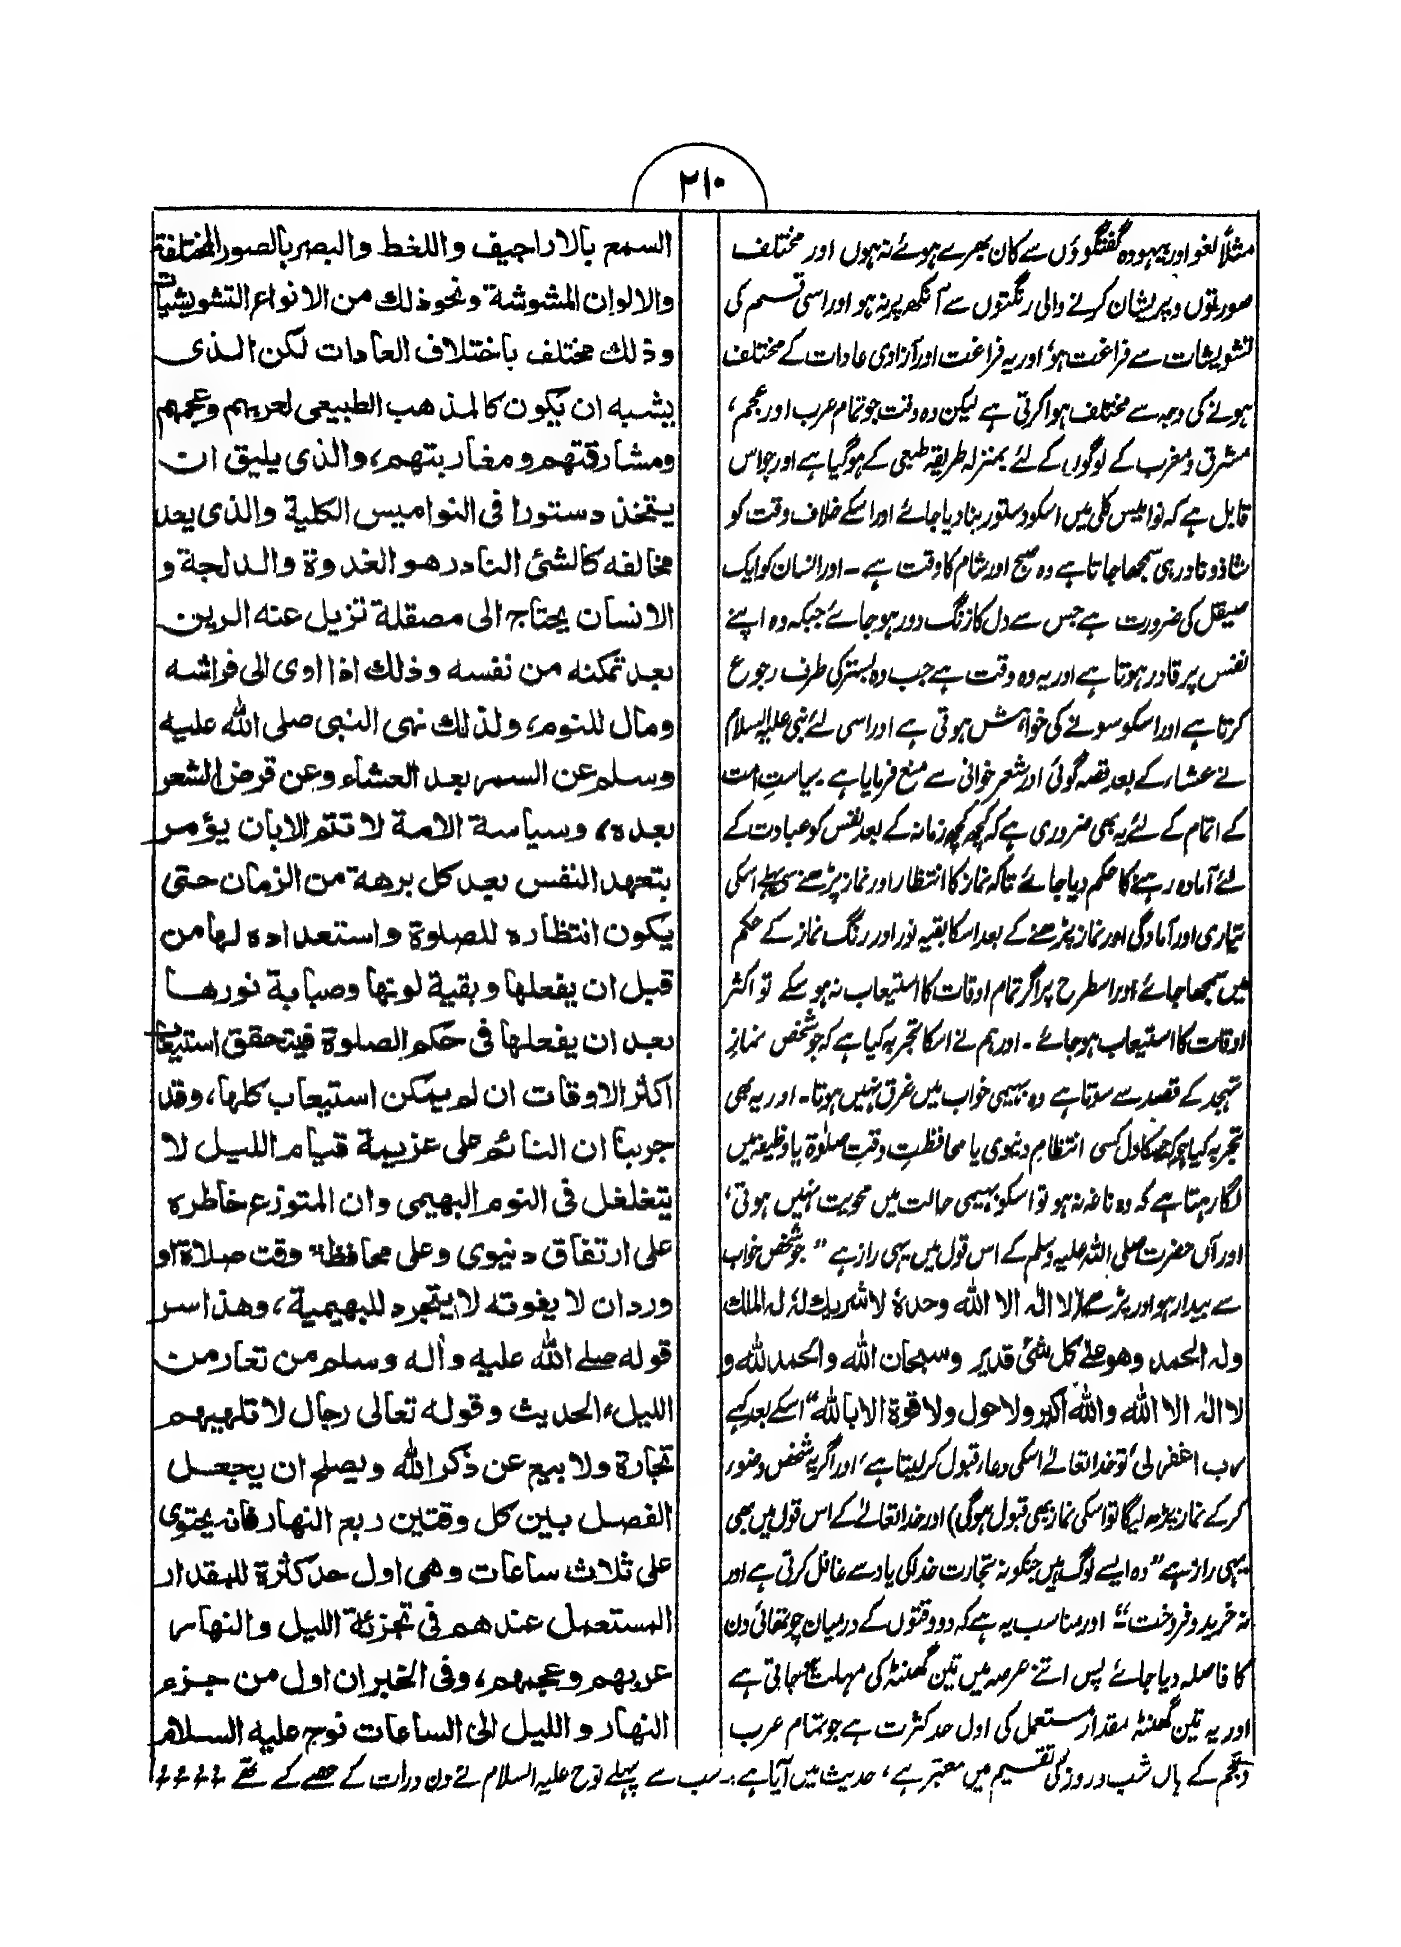 ۲۱۰
مثلاً لغو اور بیہودہ گفتگوؤں سے کان بھرے ہوئے نہ ہوں اور مختلف
صورتوں و پریشان کرنے والی رنگتوں سے آنکھ پر نہ ہو اور اسی قسم کی
تشویشات سے فراغت ہو، اور یہ فراغت اور آزادی عادات کے مختلف
ہونے کی وجہ سے مختلف ہوا کرتی ہے لیکن وہ وقت جو تمام عرب اور عجم،
مشرق و مغرب کے لوگوں کے لئے بمنزلہ طریقہ طبعی کے ہو گیا ہے اور جو اس
قابل ہے کہ نوامیس کلی میں اسکو دستور بنا دیا جائے اور اسکے خلاف وقت کو
شاذ و نادر ہی سمجھا جاتا ہے وہ صبح اور شام کا وقت ہے۔ اور انسان کو ایک
صیقل کی ضرورت ہے جس سے دل کا زنگ دور ہو جائے جبکہ وہ اپنے
نفس پر قادر ہوتا ہے اور یہ وہ وقت ہے جب وہ بستر کی طرف رجوع
کرتا ہے اور اسکو سونے کی خواہش ہوتی ہے اور اسی لئے نبی علیہ السلام
نے عشاء کے بعد قصہ گوئی اور شعر خوانی سے منع فرمایا ہے۔ سیاست امت
کے اتمام کے لئے یہ بھی ضروری ہے کہ کچھ کچھ زمانہ کے بعد نفس کو عبادت کے
لئے آمادہ رہنے کا حکم دیا جائے تاکہ نماز کا انتظار اور نماز پڑھنے سے پہلے اسکی
تیاری اور آمادگی اور نماز پڑھنے کے بعد اسکا بقیہ نور اور رنگ نماز کے حکم
میں سمجھا جائے اور اسطرح پر اگر تمام اوقات کا استیعاب نہ ہو سکے تو اکثر
اوقات کا استیعاب ہو جائے۔ اور ہم نے اسکا تجربہ کیا ہے کہ جو شخص نمازِ
تہجد کے قصد سے سوتا ہے وہ بہیمی خواب میں غرق نہیں ہوتا۔ اور یہ بھی
تجربہ کیا ہے کہ جسکا دل کسی انتظامِ دنیوی یا محافظتِ وقتِ صلوٰۃ یا وظیفہ میں
لگا رہتا ہے کہ وہ ناغہ نہ ہو تو اسکو بہیمی حالت میں محویت نہیں ہوتی،
اور آں حضرت صلی اللہ علیہ وسلم کے اس قول میں یہی راز ہے "جو شخص خواب
سے بیدار ہو اور پڑھے (لا الٰہ الا اللہ وحدہٗ لا شریك لہٗ لہ الملك
ولہ الحمد وھو علی کل شیٔ قدیر وسبحان اللہ والحمد للہ و
لا الٰہ الا اللہ واللہ اکبر ولا حول ولا قوۃ الا باللہ" اسکے بعد کہے
رب اغفر لی، تو خدا تعالےٰ اسکی دعا قبول کر لیتا ہے، اور اگر یہ شخص وضوء
کر کے نماز پڑھ لیگا تو اسکی نماز بھی قبول ہوگی) اور خدا تعالےٰ کے اس قول میں بھی
یہی راز ہے "وہ ایسے لوگ ہیں جنکو نہ تجارت خدا کی یاد سے غافل کرتی ہے اور
نہ خرید و فروخت"۔ اور مناسب یہ ہے کہ دو وقتوں کے درمیان چوتھائی دن
کا فاصلہ دیا جائے پس اتنے عرصہ میں تین گھنٹہ کی مہلت مل جاتی ہے
اور یہ تین گھنٹہ مقدار مستعمل کی اول حد کثرت ہے جو تمام عرب
وعجم کے ہاں شب و روز کی تقسیم میں معتبر ہے، حدیث میں آیا ہے:۔ سب سے پہلے نوح علیہ السلام نے دن ورات کے حصے کے تھے
السمع بالاراجيف واللغط والبصر بالصور المختلفة
والالوان المشوشة ونحو ذلك من الانواع التشويشات
وذلك مختلف باختلاف العادات لكن الذى
يشبه ان يكون كالمذهب الطبيعى لعربهم وعجمهم
ومشارقتهم ومغاربتهم، والذى يليق ان
يتخذ دستورا فى النواميس الكلية والذى يعد
مخالفه كالشئ النادر هو الغدوة والدلجة و
الانسان يحتاج الى مصقلة تزيل عنه الرين
بعد تمكنه من نفسه وذلك اذا اوى الى فراشه
ومال للنوم، ولذلك نهى النبى صلى الله عليه
وسلم عن السمر بعد العشاء وعن قرض الشعر
بعده، وسياسة الامة لا تتم الا بان يؤمر
بتعهد النفس بعد كل برهة من الزمان حتى
يكون انتظاره للصلوة واستعداده لها من
قبل ان يفعلها وبقية لونها وصبابة نورها
بعد ان يفعلها فى حكم الصلوة فيتحقق استيعاب
اكثر الاوقات ان لم يمكن استيعاب كلها، وقد
جربنا ان النائم على عزيمة قيام الليل لا
يتغلغل فى النوم البهيمى وان المتوزع خاطره
على ارتفاق دنيوى وعلى محافظة وقت صلاة او
ورد ان لا يفوته لا يتجرد للبهيمية، وهذا سر
قوله صلے الله عليه وأله وسلم من تعار من
الليل، الحديث وقوله تعالى رجال لا تلهيهم
تجارة ولا بيع عن ذكر الله ويصلح ان يجعل
الفصل بين كل وقتين ربع النهار فانه يحتوى
على ثلاث ساعات وهى اول حد كثرة للمقدار
المستعمل عندهم فى تجزئة الليل والنهار
عربهم وعجمهم، وفى الخبر ان اول من جزء
النهار والليل الى الساعات نوح عليه السلام